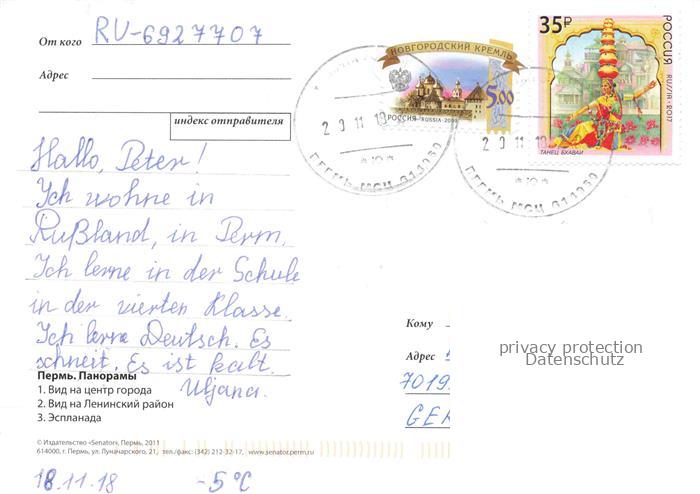 От кого RU-6927707
Адрес
индекс отправителя
НОВГОРОДСКИЙ КРЕМЛЬ
5.00
РОССИЯ RUSSIA
35₽
РОССИЯ
RUSSIA · 2017
ТАНЕЦ БХАВАИ
ПЕРМЬ МСЦ
ПЕРМЬ МСЦ
Hallo, Peter!
Ich wohne in
Rußland, in Perm.
Ich lerne in der Schule
in der vierten Klasse.
Ich lerne Deutsch. Es
schneit. Es ist kalt.
Uljana.
Кому
Адрес
7019
GER
privacy protection
Datenschutz
Пермь. Панорамы
1. Вид на центр города
2. Вид на Ленинский район
3. Эспланада
© Издательство «Senator», Пермь, 2011
614000, г. Пермь, ул. Луначарского, 21, тел./факс: (342) 212-32-17, www.senator.perm.ru
18.11.18 -5°C